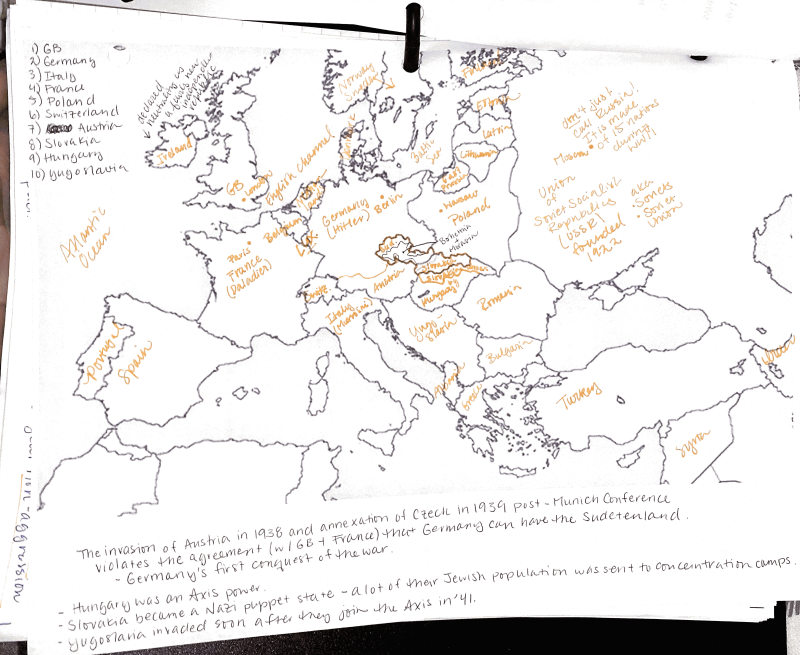 1) GB
2) Germany
3) Italy
4) France
5) Poland
6) Switzerland
7) Austria
8) Slovakia
9) Hungary
10) Yugoslavia
declared
neutrality as
republic
Ireland
Norway
Sweden
Finland
Latvia
Lithuania
Baltic
Sea
East
Prussia
don't just
call Russia!
It is made
of 15 nations
during
WWII
Moscow
Union
of
Soviet Socialist
Republics
(USSR)
founded
1922
aka
• Soviets
• Soviet
Union
GB
London
English Channel
Belgium
Lux
Germany
(Hitler)
Berlin
Warsaw
Poland
Bohemia
+
Moravia
Atlantic
Ocean
Paris
France
(Daladier)
Austria
Hungary
Romania
Italy
(Mussolini)
Yugo-
slavia
Bulgaria
Albania
Greece
Portugal
Spain
Turkey
Syria
-aggression
The invasion of Austria in 1938 and annexation of Czech in 1939 post-Munich Conference
violates the agreement (w/ GB + France) that Germany can have the Sudetenland.
- Germany's first conquest of the war.
- Hungary was an Axis power.
- Slovakia became a Nazi puppet state - a lot of their Jewish population was sent to concentration camps.
- Yugoslavia invaded soon after they join the Axis in '41.